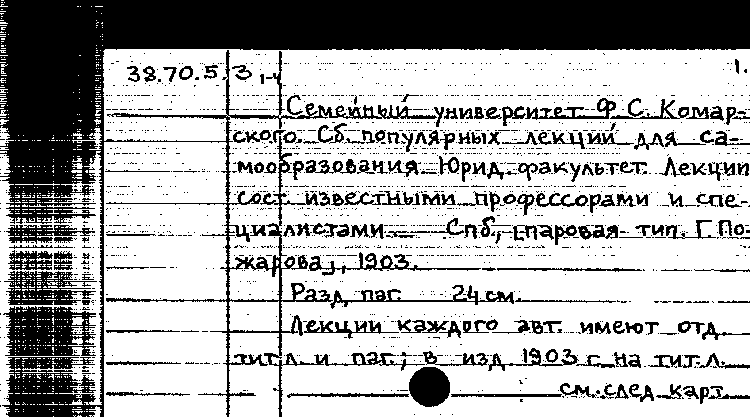 1.
38.70.5.3 1-4
Семейный университет Ф. С. Комар-
ского. Сб. популярных лекций для са-
мообразования. Юрид. факультет. Лекции
сост. известными профессорами и спе-
циалистами... Спб., [паровая тип. Г. По-
жарова], 1903.
Разд. паг. 24 см.
Лекции каждого авт. имеют отд.
тит. л. и паг.; в изд. 1903 г. на тит. л.
см. след. карт.